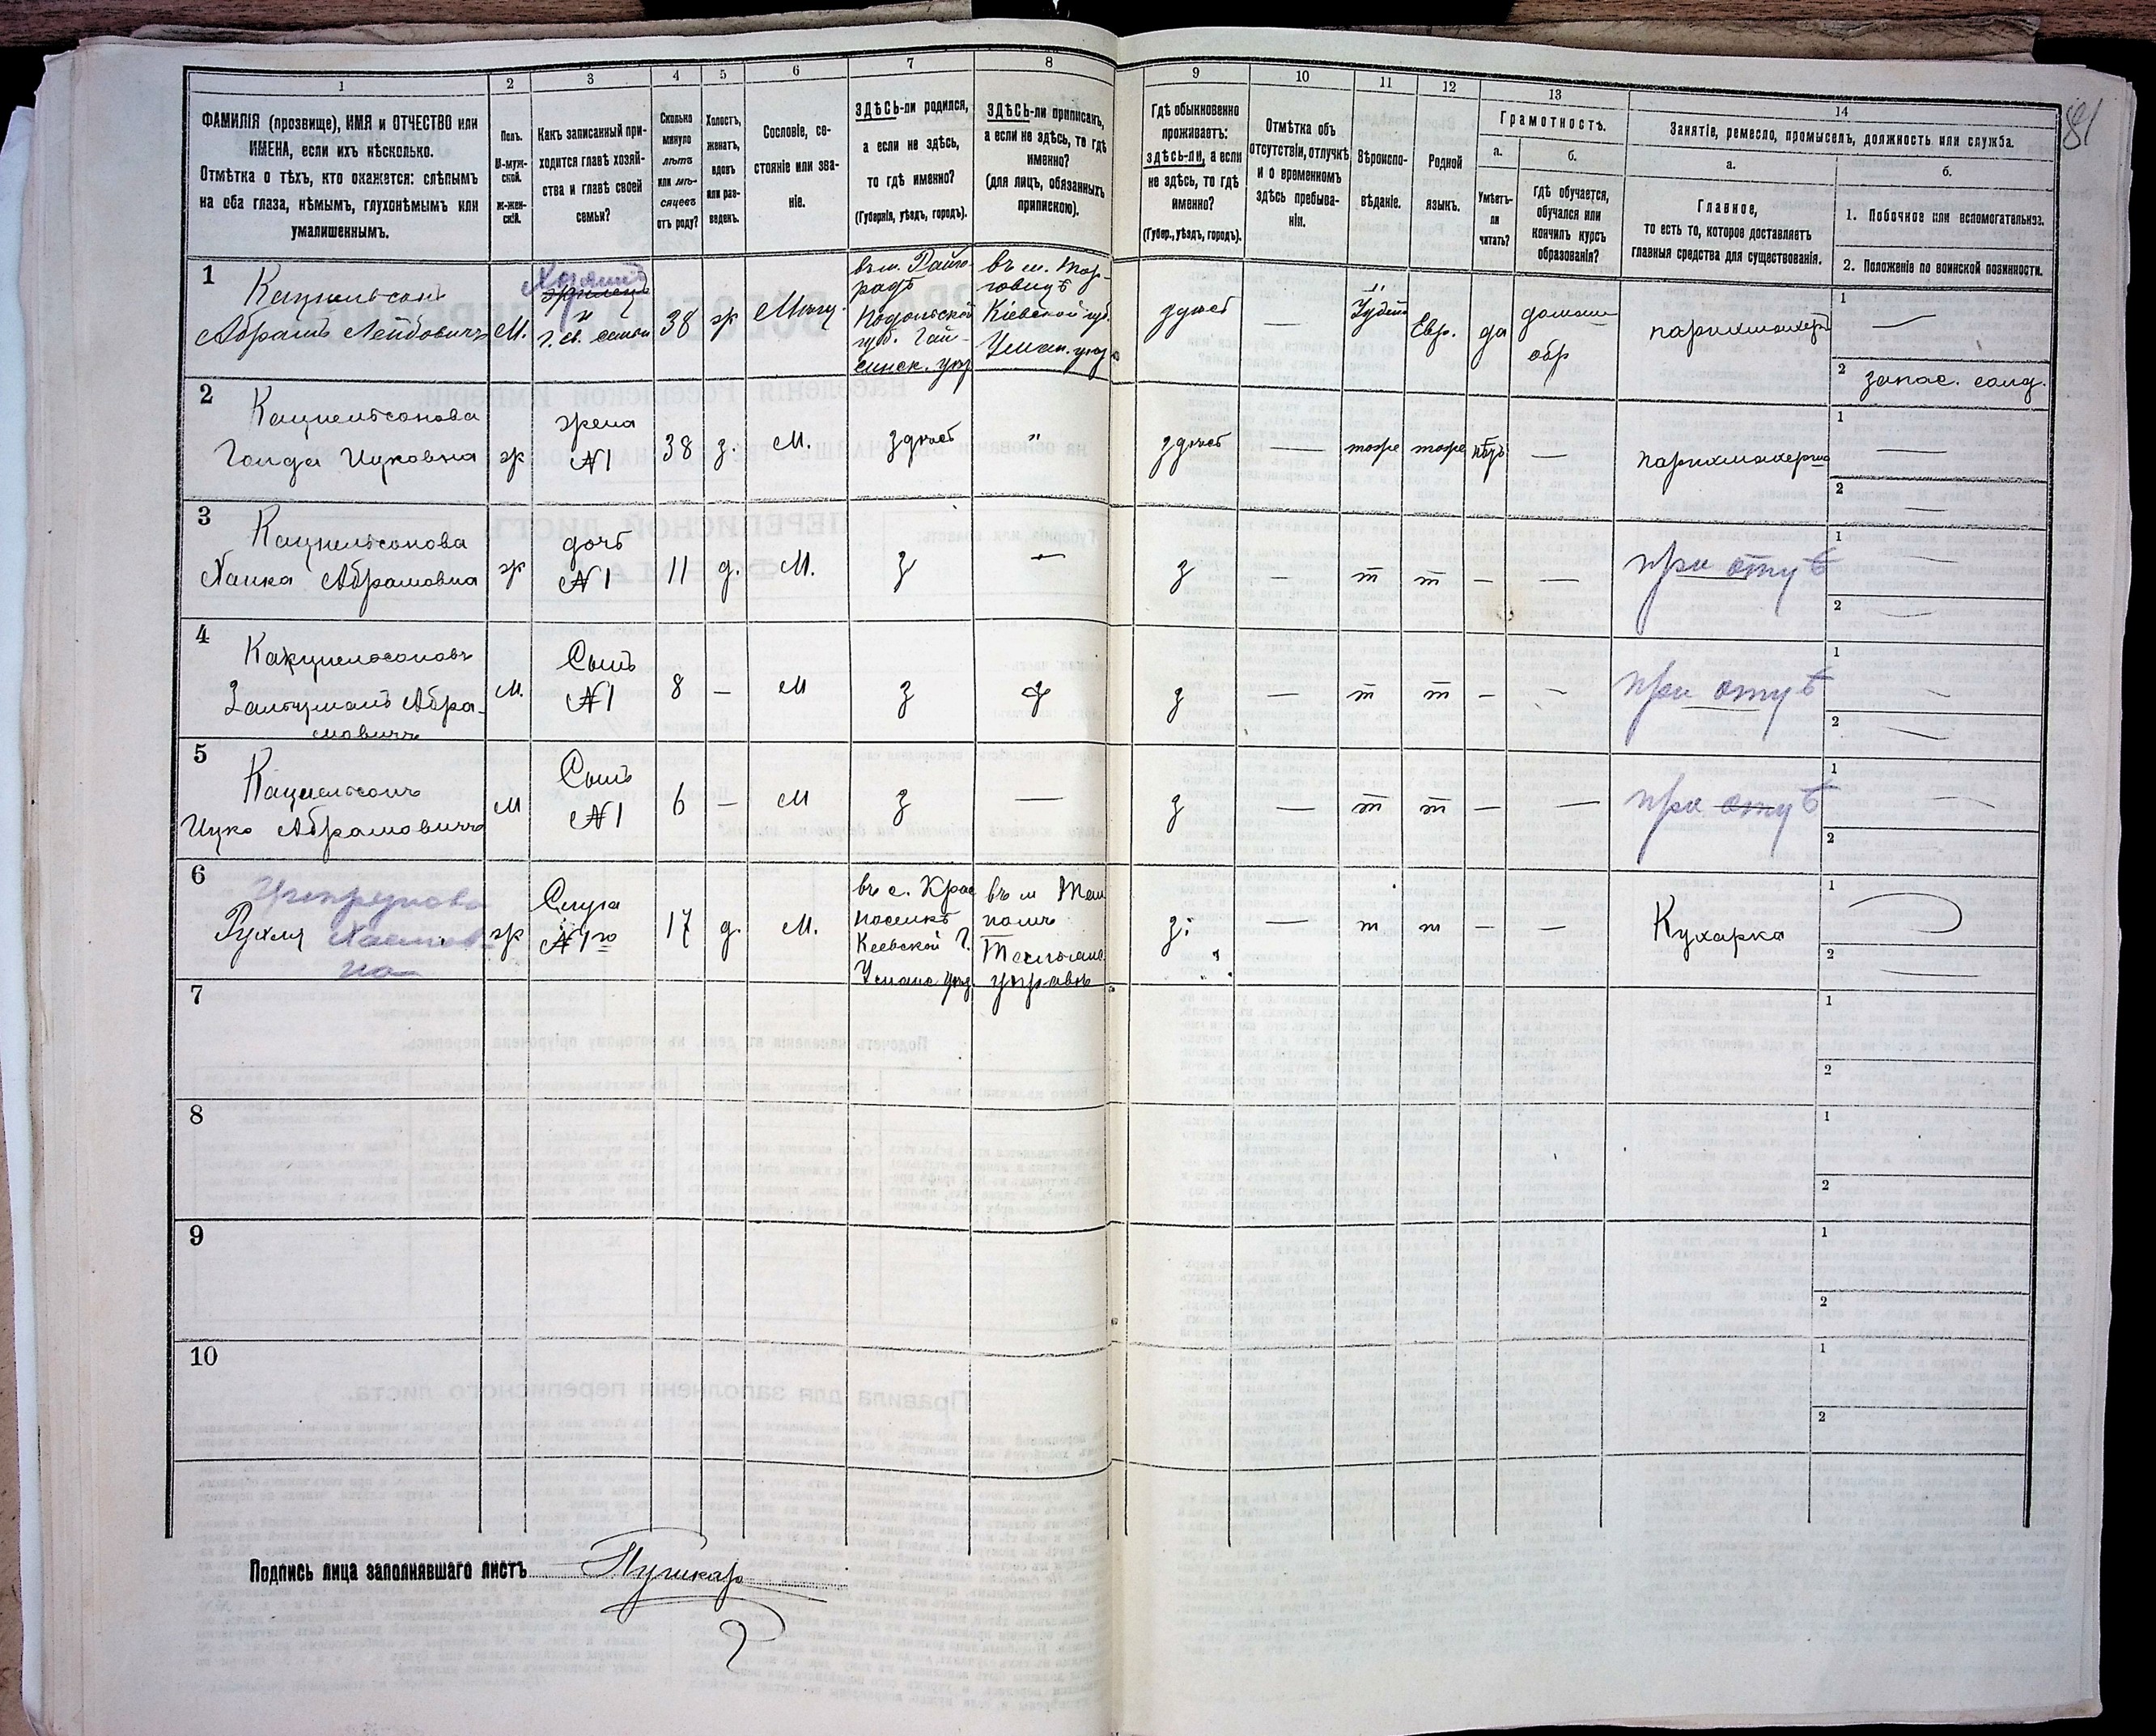 81
1 2 3 4 5 6 7 8 9 10 11 12 13 14
ФАМИЛІЯ (прозвище), ИМЯ и ОТЧЕСТВО или
ИМЕНА, если ихъ нѣсколько.
Отмѣтка о тѣхъ, кто окажется: слѣпымъ
на оба глаза, нѣмымъ, глухонѣмымъ или
умалишеннымъ.
Полъ.
М-муж-
ской.
Ж-жен-
скій.
Какъ записанный при-
ходится главѣ хозяй-
ства и главѣ своей
семьи?
Сколько
минуло
лѣтъ
или мѣ-
сяцевъ
отъ роду?
Холостъ,
женатъ,
вдовъ
или раз-
веденъ.
Сословіе, со-
стояніе или зва-
ніе.
ЗДѢСЬ-ли родился,
а если не здѣсь,
то гдѣ именно?
(Губернія, уѣздъ, городъ).
ЗДѢСЬ-ли приписанъ,
а если не здѣсь, то гдѣ
именно?
(для лицъ, обязанныхъ
припискою).
Гдѣ обыкновенно
проживаетъ:
здѣсь-ли, а если
не здѣсь, то гдѣ
именно?
(Губер., уѣздъ, городъ).
Отмѣтка объ
отсутствіи, отлучкѣ
и о временномъ
здѣсь пребыва-
ніи.
Вѣроиспо-
вѣданіе.
Родной
языкъ.
Грамотность.
а.
Умѣетъ-
ли
читать?
б.
гдѣ обучается,
обучался или
кончилъ курсъ
образованія?
Занятіе, ремесло, промыселъ, должность или служба.
а.
Главное,
то есть то, которое доставляетъ
главныя средства для существованія.
б.
1. Побочное или вспомогательное.
2. Положеніе по воинской повинности.
1
Кацнельсонъ
Абрамъ Лейбовичъ
М.
Хозяинъ
и
г. св. семьи
38
ж
Мѣщ.
въ м. Райго-
родѣ
Подольской
губ. Гай-
синск. уѣз
въ м. Тор-
говицѣ
Кіевской губ.
Уман. уѣз
здѣсь
—
Іудей
Евр.
да
домаш
обр
парихмахеръ
1 —
2 запас. солд.
2
Кацнельсонова
Голда Ицковна
ж
жена
№ 1
38
з.
М.
здѣсь
"
здѣсь
—
тоже
тоже
нѣтъ
—
парихмахерша
1 —
2 —
3
Кацнельсонова
Ханка Абрамовна
ж
дочь
№ 1
11
д.
М.
з
—
з
—
т
т
—
—
при отцѣ
1 —
2 —
4
Кацнельсоновъ
Залцманъ Абра-
мовичъ
М.
Сынъ
№ 1
8
—
М
з
з
—
т
т
—
—
при отцѣ
1 —
2 —
5
Кацнельсонъ
Ицко Абрамовичъ
М
Сынъ
№ 1
6
—
М
з
—
з
—
т
т
—
—
при отцѣ
1 —
2
6
Рухля
на
ж
Слуга
№ 1го
17
д.
М.
въ с. Крас
Кеевской Г.
въ м
з.
—
т
т
—
—
Кухарка
1
2 —
7
1
2
8
1
2
9
1
2
10
1
2
Подпись лица заполнявшаго листъ Пушкарь